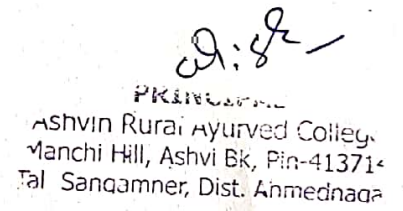 PRINCIPAL
Ashvin Rural Ayurved College
Manchi Hill, Ashvi Bk, Pin-413714
Tal Sangamner, Dist. Ahmednaga